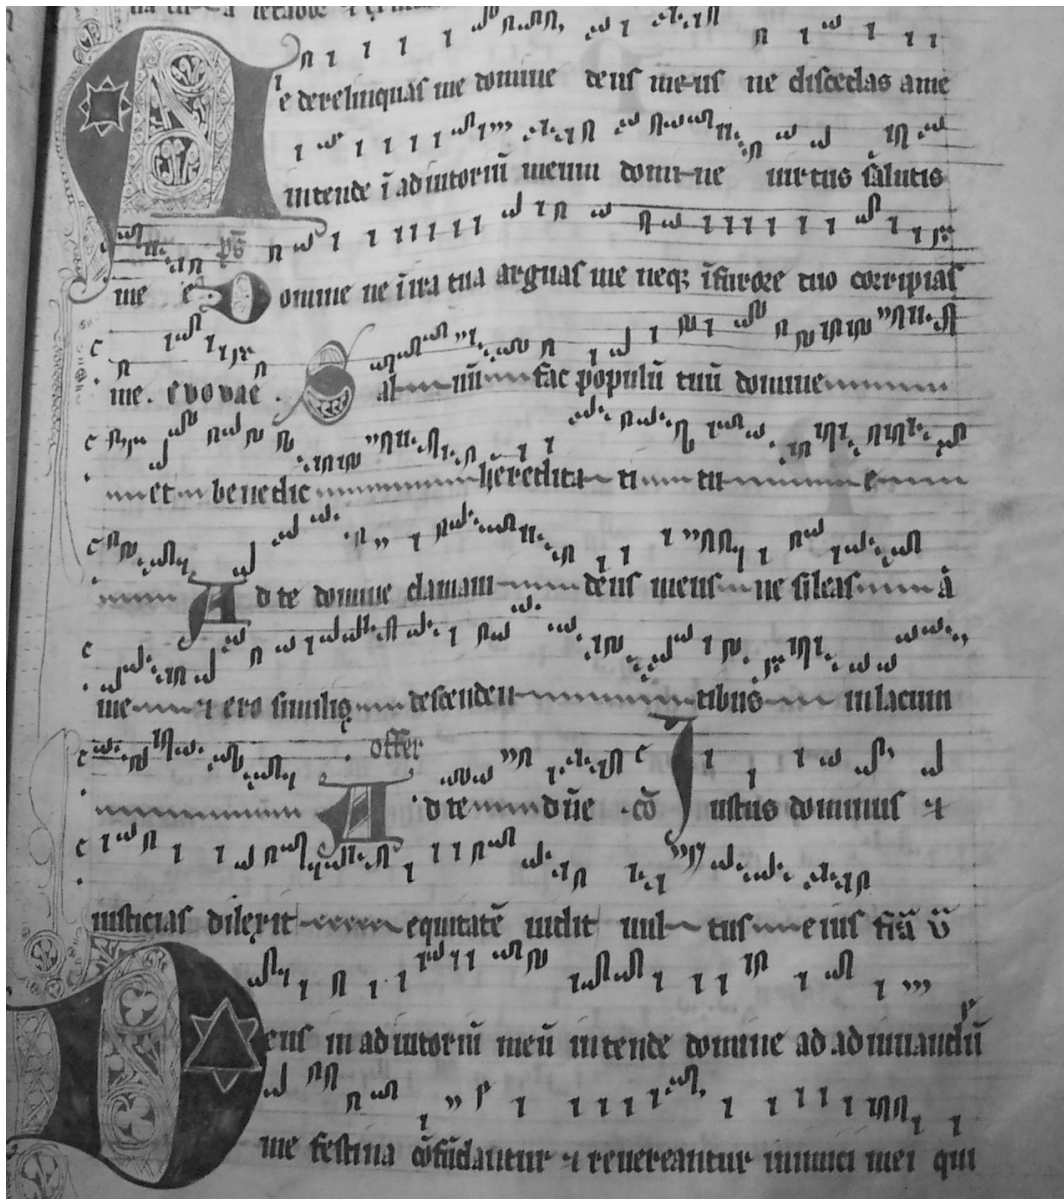 Ne derelinquas me domine deus meus ne discedas a me
intende ĩ adiutoriũ meum domine uirtus salutis
me e p̃s Domine ne ĩ ira tua arguas me neq; ĩ furore tuo corripias
me. evovae. Saluũ fac populũ tuũ domine
et benedic hereditati tue
Ad te domine clamam deus meus ne sileas a
me et ero similis descendentibus in lacum
offer Ad te dñe cõ Justus dominus et
iusticias dilexit equitatẽ uidit uultus eius
Deus in adiutoriũ meũ intende domine ad adiuuandũ
me festina cõfũdantur et reuereantur inimici mei qui